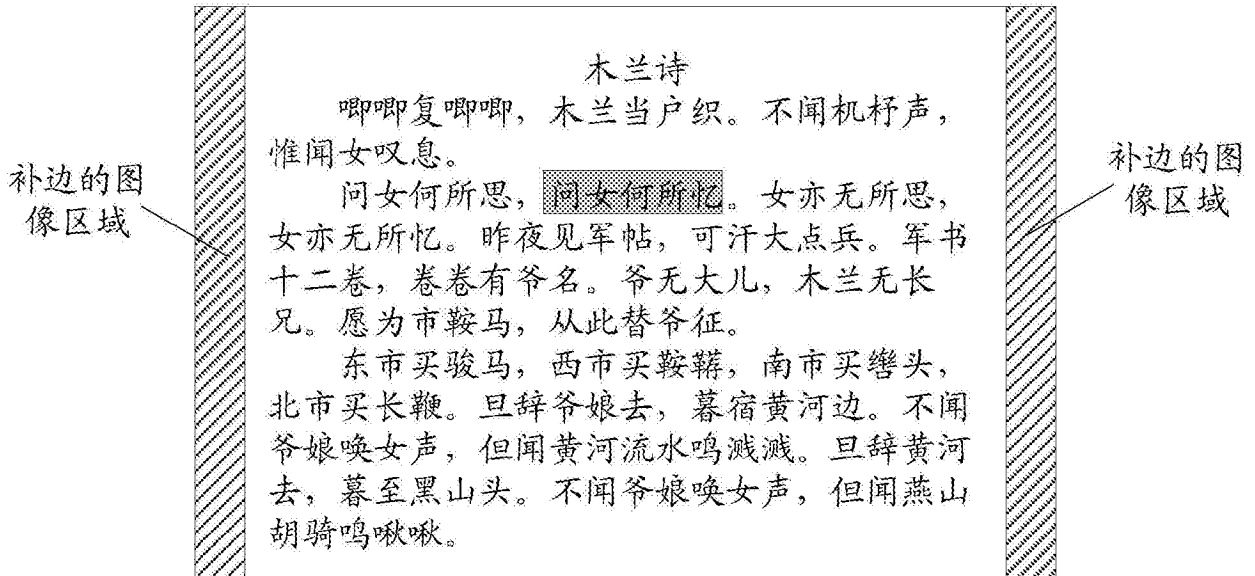 木兰诗
唧唧复唧唧，木兰当户织。不闻机杼声，
惟闻女叹息。
问女何所思，问女何所忆。女亦无所思，
女亦无所忆。昨夜见军帖，可汗大点兵。军书
十二卷，卷卷有爷名。爷无大儿，木兰无长
兄。愿为市鞍马，从此替爷征。
东市买骏马，西市买鞍鞯，南市买辔头，
北市买长鞭。旦辞爷娘去，暮宿黄河边。不闻
爷娘唤女声，但闻黄河流水鸣溅溅。旦辞黄河
去，暮至黑山头。不闻爷娘唤女声，但闻燕山
胡骑鸣啾啾。
补边的图
像区域
补边的图
像区域